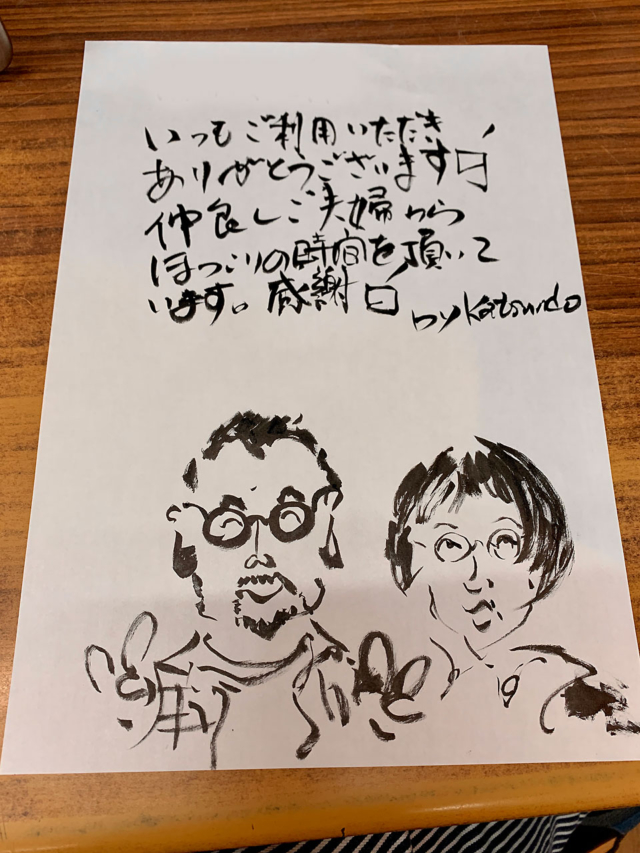 いつもご利用いただき
ありがとうございます
仲良しご夫婦から
ほっこりの時間を頂いて
います。感謝
by Katsundo